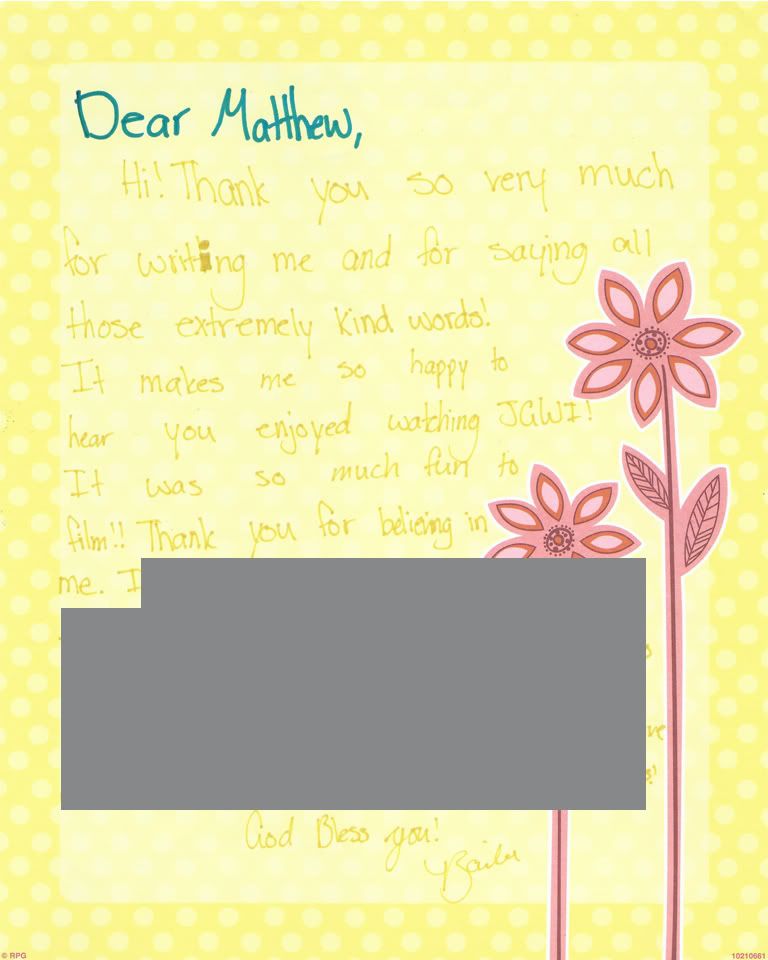 Dear Matthew,
Hi! Thank you so very much
for writing me and for saying all
those extremely kind words!
It makes me so happy to
hear you enjoyed watching JGWI!
It was so much fun to
film!! Thank you for believing in
me. I
God Bless you!
© RPG
10210661